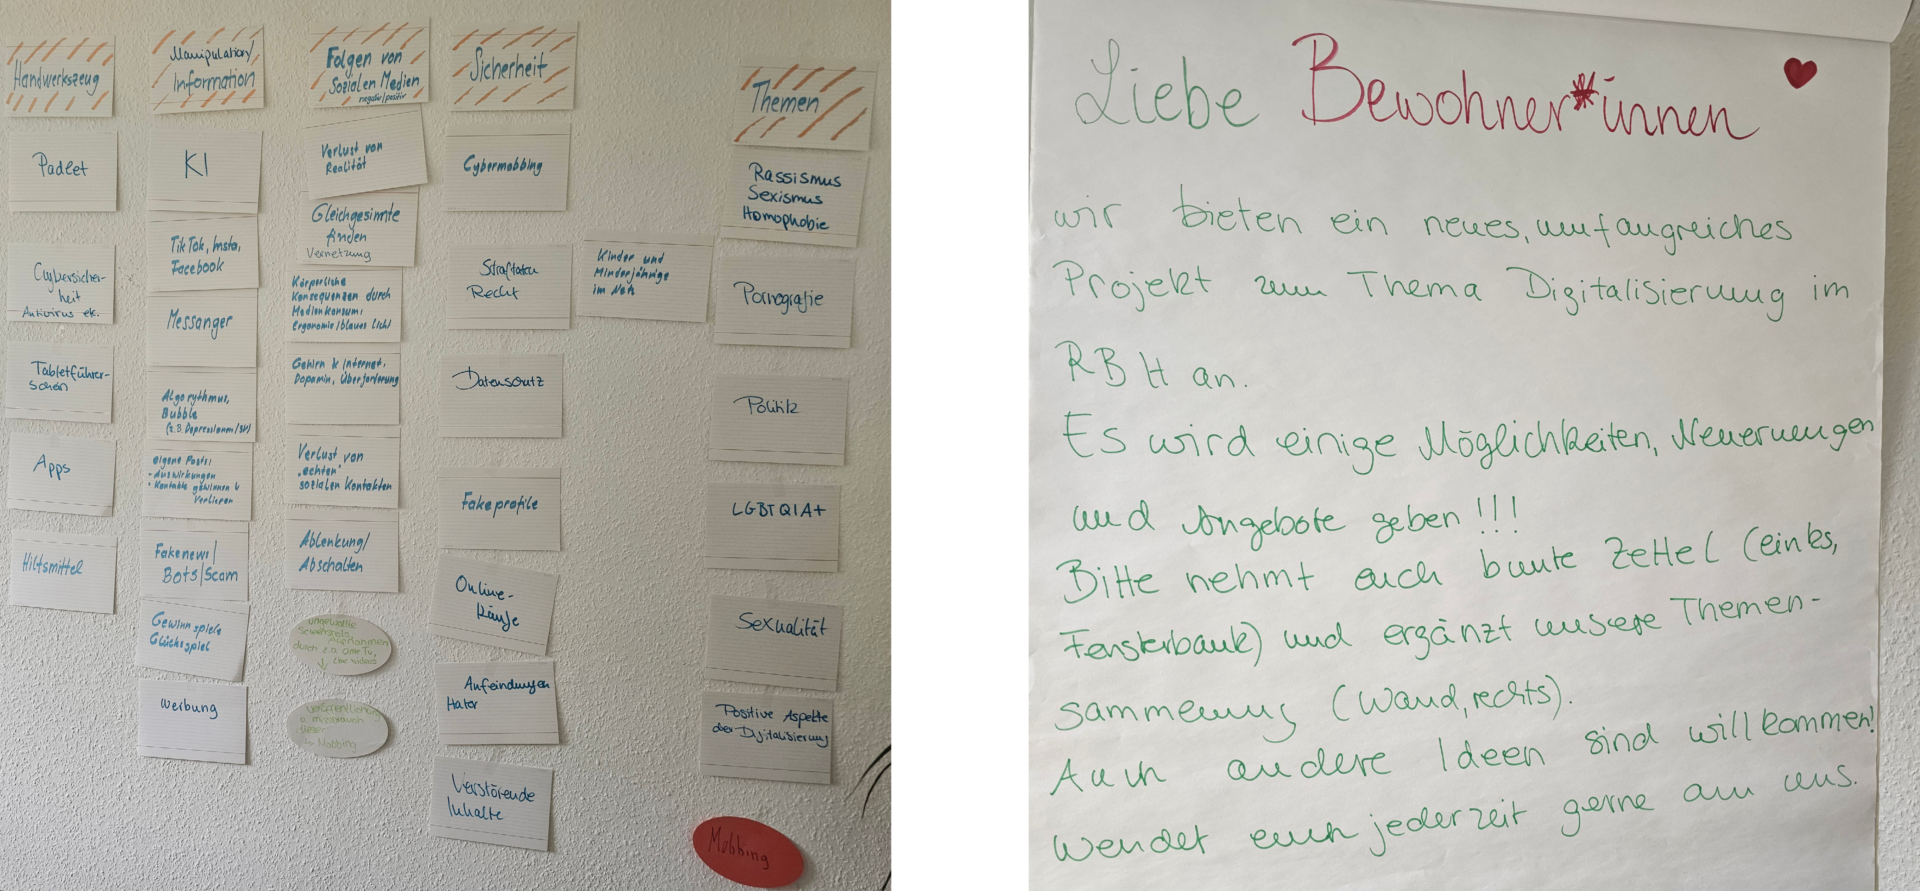 Handwerkszeug
Padlet
Cybersicher-
heit
Antivirus etc.
Tabletführer-
schein
Apps
Hilfsmittel
Manipulation/
Information
KI
TikTok, Insta,
Facebook
Messanger
Algorythmus,
Bubble
(z.B. Depressionen/SV)
eigene Posts:
- Auswirkungen
- Kontakte gewinnen &
verlieren
Fakenews/
Bots/Scam
Gewinnspiele
Glücksspiel
Werbung
Folgen von
Sozialen Medien
negativ/positiv
Verlust von
Realität
Gleichgesinnte
finden
Vernetzung
Körperliche
Konsequenzen durch
Medienkonsum:
Ergonomie/blaues Licht
Gehirn & Internet,
Dopamin, Überforderung
Verlust von
"echten"
sozialen Kontakten
Ablenkung/
Abschalten
ungewollte
Aufnahmen
durch z.B. OmeTV,
Live Videos
Veröffentlichung
o. Missbrauch
dieser
→ Mobbing
Sicherheit
Cybermobbing
Straftaten
Recht
Datenschutz
Fakeprofile
Online-
käufe
Anfeindungen
Hater
Verstörende
Inhalte
Kinder und
Minderjährige
im Netz
Themen
Rassismus
Sexismus
Homophobie
Pornografie
Politik
LGBTQIA+
Sexualität
Positive Aspekte
der Digitalisierung
Mobbing
Liebe Bewohner*innen
wir bieten ein neues, umfangreiches
Projekt zum Thema Digitalisierung im
RBH an.
Es wird einige Möglichkeiten, Neuerungen
und Angebote geben!!!
Bitte nehmt euch bunte Zettel (links,
Fensterbank) und ergänzt unsere Themen-
sammlung (Wand, rechts).
Auch andere Ideen sind willkommen!
Wendet euch jederzeit gerne an uns.